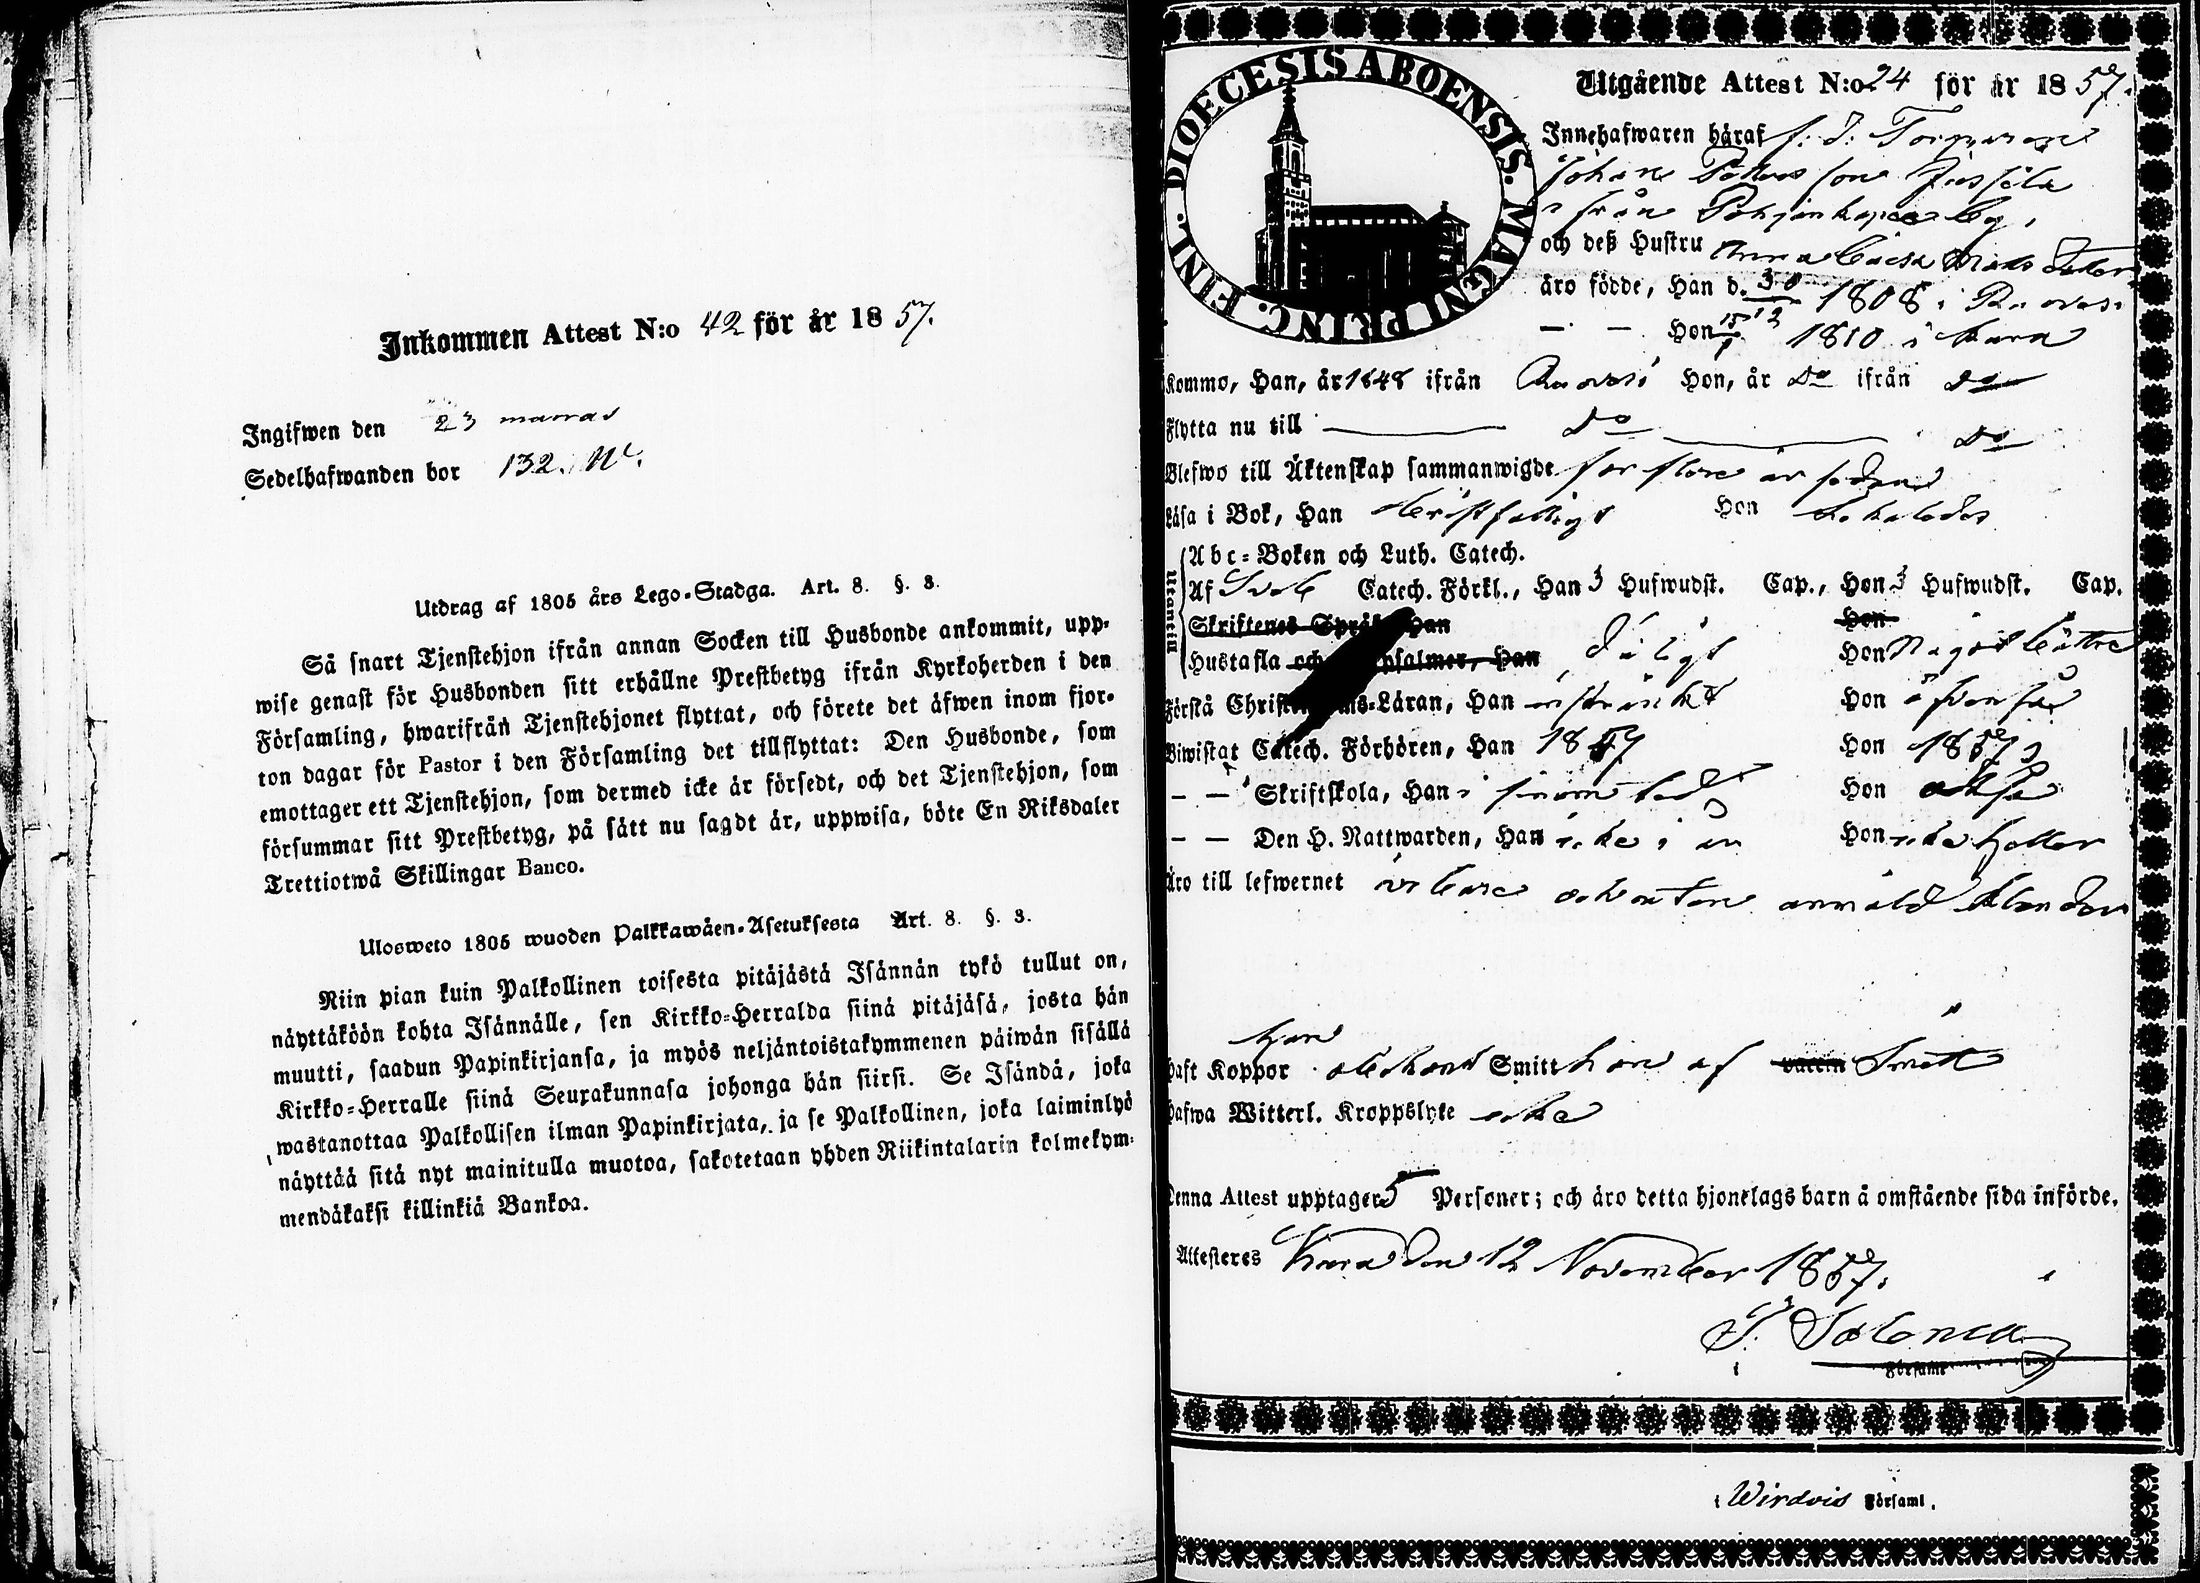 Inkommen Attest N:o 42 för år 1857.
Ingifwen den 23 marras
Sedelhafwanden bor 132.
Utdrag af 1805 års Lego-Stadga. Art. 8. §. 3.
Så snart Tjenstehjon ifrån annan Socken till Husbonde ankommit, upp-
wise genast för Husbonden sitt erhållne Prestbetyg ifrån Kyrkoherden i den
Församling, hwarifrån Tjenstehjonet flyttat, och förete det äfwen inom fjor-
ton dagar för Pastor i den Församling det tillflyttat: Den Husbonde, som
emottager ett Tjenstehjon, som dermed icke är försedt, och det Tjenstehjon, som
försummar sitt Prestbetyg, på sätt nu sagdt är, uppwisa, böte En Riksdaler
Trettiotwå Skillingar Banco.
Ulosweto 1805 wuoden Palkkawäen-Asetuksesta Art. 8. §. 3.
Niin pian kuin Palkollinen toisesta pitäjästä Isännän tykö tullut on,
näyttäköön kohta Isännälle, sen Kirkko-Herralda siinä pitäjäsä, josta hän
muutti, saadun Papinkirjansa, ja myös neljäntoistakymmenen päiwän sisällä
Kirkko-Herralle siinä Seurakunnasa johonga hän siirsi. Se Isändä, joka
wastanottaa Palkollisen ilman Papinkirjata, ja se Palkollinen, joka laiminlyö
näyttää sitä nyt mainitulla muotoa, sakotetaan yhden Riikintalarin kolmekym-
mendäkaksi killinkiä Bankoa.
DIOECESIS ABOENSIS. MAGNI PRINC. FINL.
Utgående Attest N:o 24 för år 1857.
Innehafwaren häraf f. d. Torparen
Johan
från by,
och deß Hustru Anna Caisa Matsdotter
äro födde, Han d. 30/12 1808 i Ruovesi
— — Hon 15/1 1810 i Kuru
Kommo, Han, år 1848 ifrån Ruovesi Hon, år Do ifrån Do
Flytta nu till Do Do
Blefwo till Äktenskap sammanwigde för flere år sedan
Läsa i Bok, Han Hon
Utantill
Abc-Boken och Luth. Catech.
Af Catech. Förkl., Han 3 Hufwudst. Cap., Hon 3 Hufwudst. Cap.
Skriftenes Språk, Han Hon
Hustafla och psalmer, Han Hon något bättre
Förstå Christendoms-Läran, Han inskränkt Hon
Biwistat Catech. Förhören, Han 1857 Hon 1857
— — Skriftskola, Han Hon också
— — Den H. Nattwarden, Han icke i år Hon icke heller
Äro till lefwernet
Haft Koppor Smitt af vaccin
Hafwa Witterl. Kroppslyte icke
Denna Attest upptager 5 Personer; och äro detta hjonelags barn å omstående sida införde.
Attesteres Kuru den 12 November 1857.
i Församl
i Wirdois Församl.